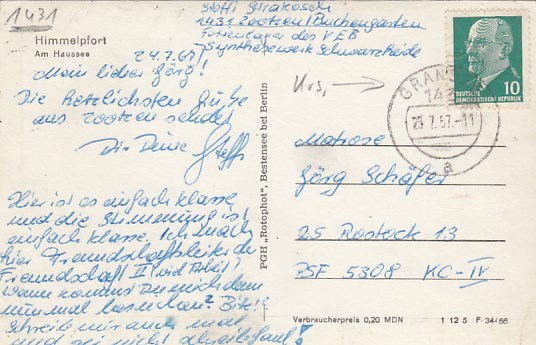 1431
Himmelpfort
Am Haussee
Steffi
1431 Zootzen / Buchengarten
Ferienlager des VEB
Synthesewerk Schwarzheide
24.7.67
Mein lieber Jörg!
Die herzlichsten Grüße
aus Zootzen sendet
Dir Deine Steffi
Hier ist es einfach klasse
und die Stimmung ist
einfach klasse. Ich
hier
Freundschaft II
Wann kommst Du mich denn
nun mal besuchen? Bitte
schreib mir auch mal
und sei nicht schreibfaul!
PGH „Rotophot", Bestensee bei Berlin
Urs,
GRAN
143
25.7.67-11
a
10
DEUTSCHE
DEMOKRATISCHE REPUBLIK
Matrose
Jörg Schäfer
25 Rostock 13
PSF 5308 KC-IV
Verbraucherpreis 0,20 MDN
1 12 5 F 34-66